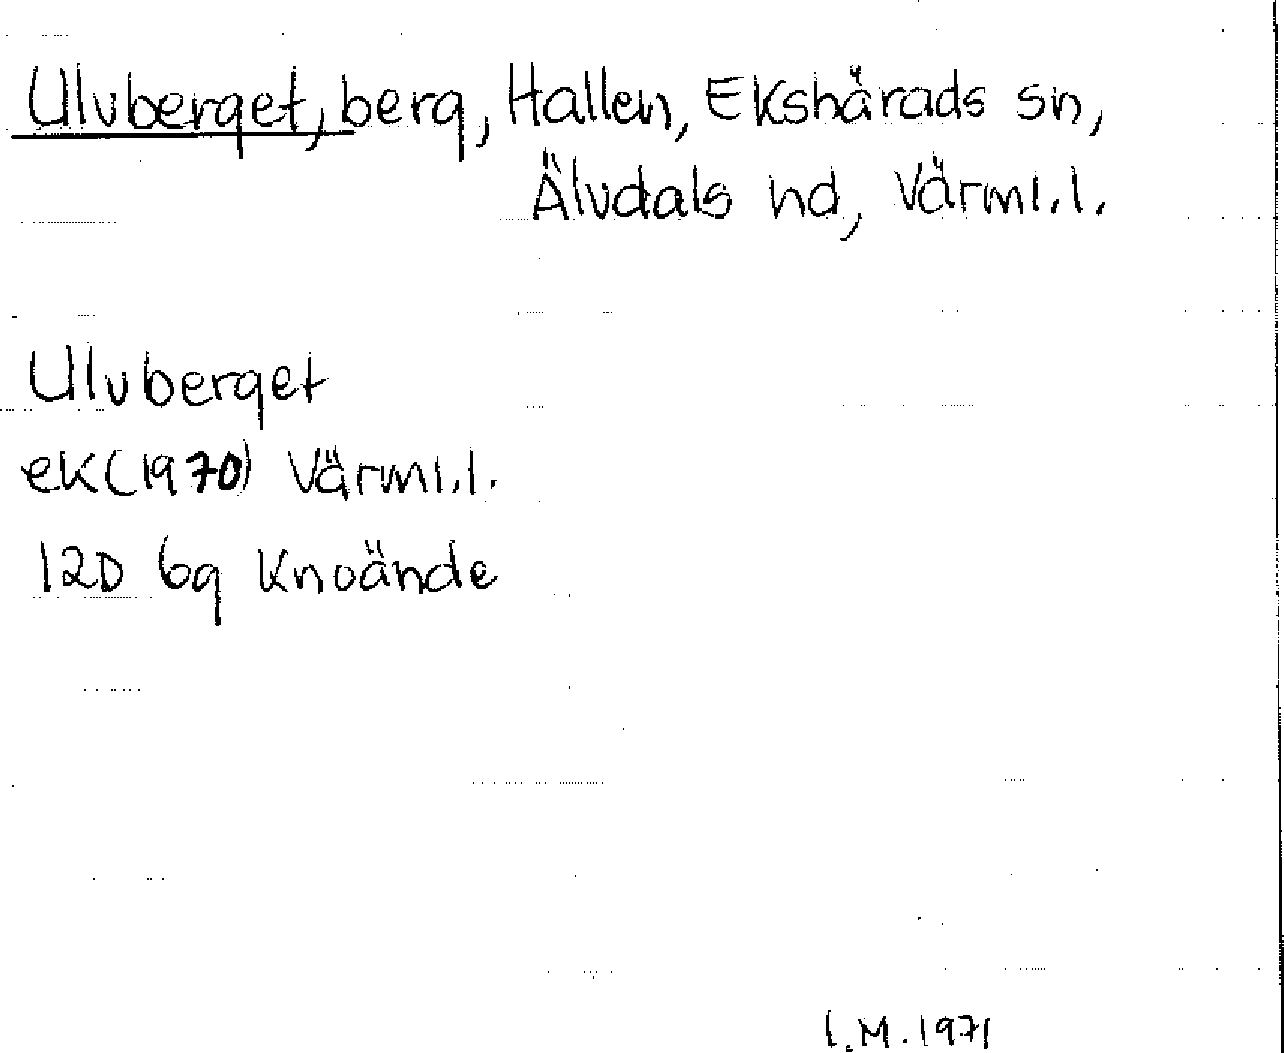 Ulvberget, berg, Hallen, Ekshärads sn,
Älvdals hd, Värml.l.
Ulvberget
ek(1970) Värml.l.
12D 6g Knoände
I.M.1971